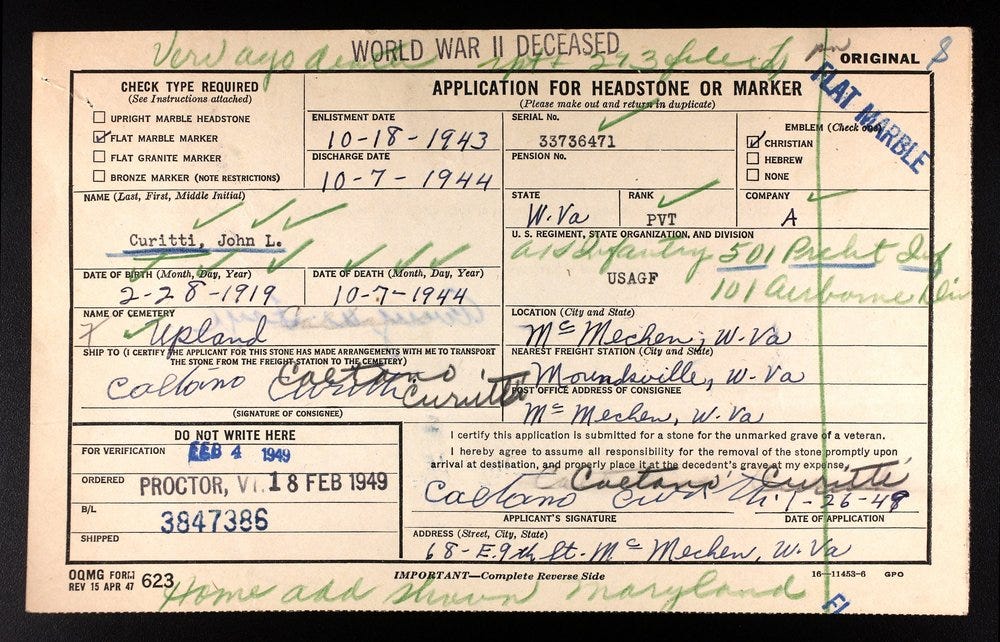 WORLD WAR II DECEASED
ORIGINAL
FLAT MARBLE
CHECK TYPE REQUIRED
(See Instructions attached)
UPRIGHT MARBLE HEADSTONE
FLAT MARBLE MARKER
FLAT GRANITE MARKER
BRONZE MARKER (NOTE RESTRICTIONS)
APPLICATION FOR HEADSTONE OR MARKER
(Please make out and return in duplicate)
ENLISTMENT DATE
10-18-1943
DISCHARGE DATE
10-7-1944
SERIAL No.
33736471
PENSION No.
EMBLEM (Check one)
CHRISTIAN
HEBREW
NONE
STATE
W.Va
RANK
PVT
COMPANY
A
NAME (Last, First, Middle Initial)
Curitti, John L.
U. S. REGIMENT, STATE ORGANIZATION, AND DIVISION
Infantry 501 Prcht Inf
USAGF
101 Airborne Div
DATE OF BIRTH (Month, Day, Year)
2-28-1919
DATE OF DEATH (Month, Day, Year)
10-7-1944
NAME OF CEMETERY
Upland
LOCATION (City and State)
McMechen, W-Va
SHIP TO (I CERTIFY THE APPLICANT FOR THIS STONE HAS MADE ARRANGEMENTS WITH ME TO TRANSPORT
THE STONE FROM THE FREIGHT STATION TO THE CEMETERY)
Caetano Curitti
(SIGNATURE OF CONSIGNEE)
NEAREST FREIGHT STATION (City and State)
Moundsville, W-Va
POST OFFICE ADDRESS OF CONSIGNEE
McMechen, W.Va
DO NOT WRITE HERE
FOR VERIFICATION
FEB 4 1949
ORDERED
PROCTOR, VT. 18 FEB 1949
B/L
3847386
SHIPPED
I certify this application is submitted for a stone for the unmarked grave of a veteran.
I hereby agree to assume all responsibility for the removal of the stone promptly upon
arrival at destination, and properly place it at the decedent's grave at my expense.
Caetano Curitti 1-26-49
APPLICANT'S SIGNATURE
DATE OF APPLICATION
ADDRESS (Street, City, State)
68-E.9th St. McMechen, W.Va
OQMG FORM
REV 15 APR 47 623
IMPORTANT—Complete Reverse Side
16—11453-6 GPO
Home add shown Maryland